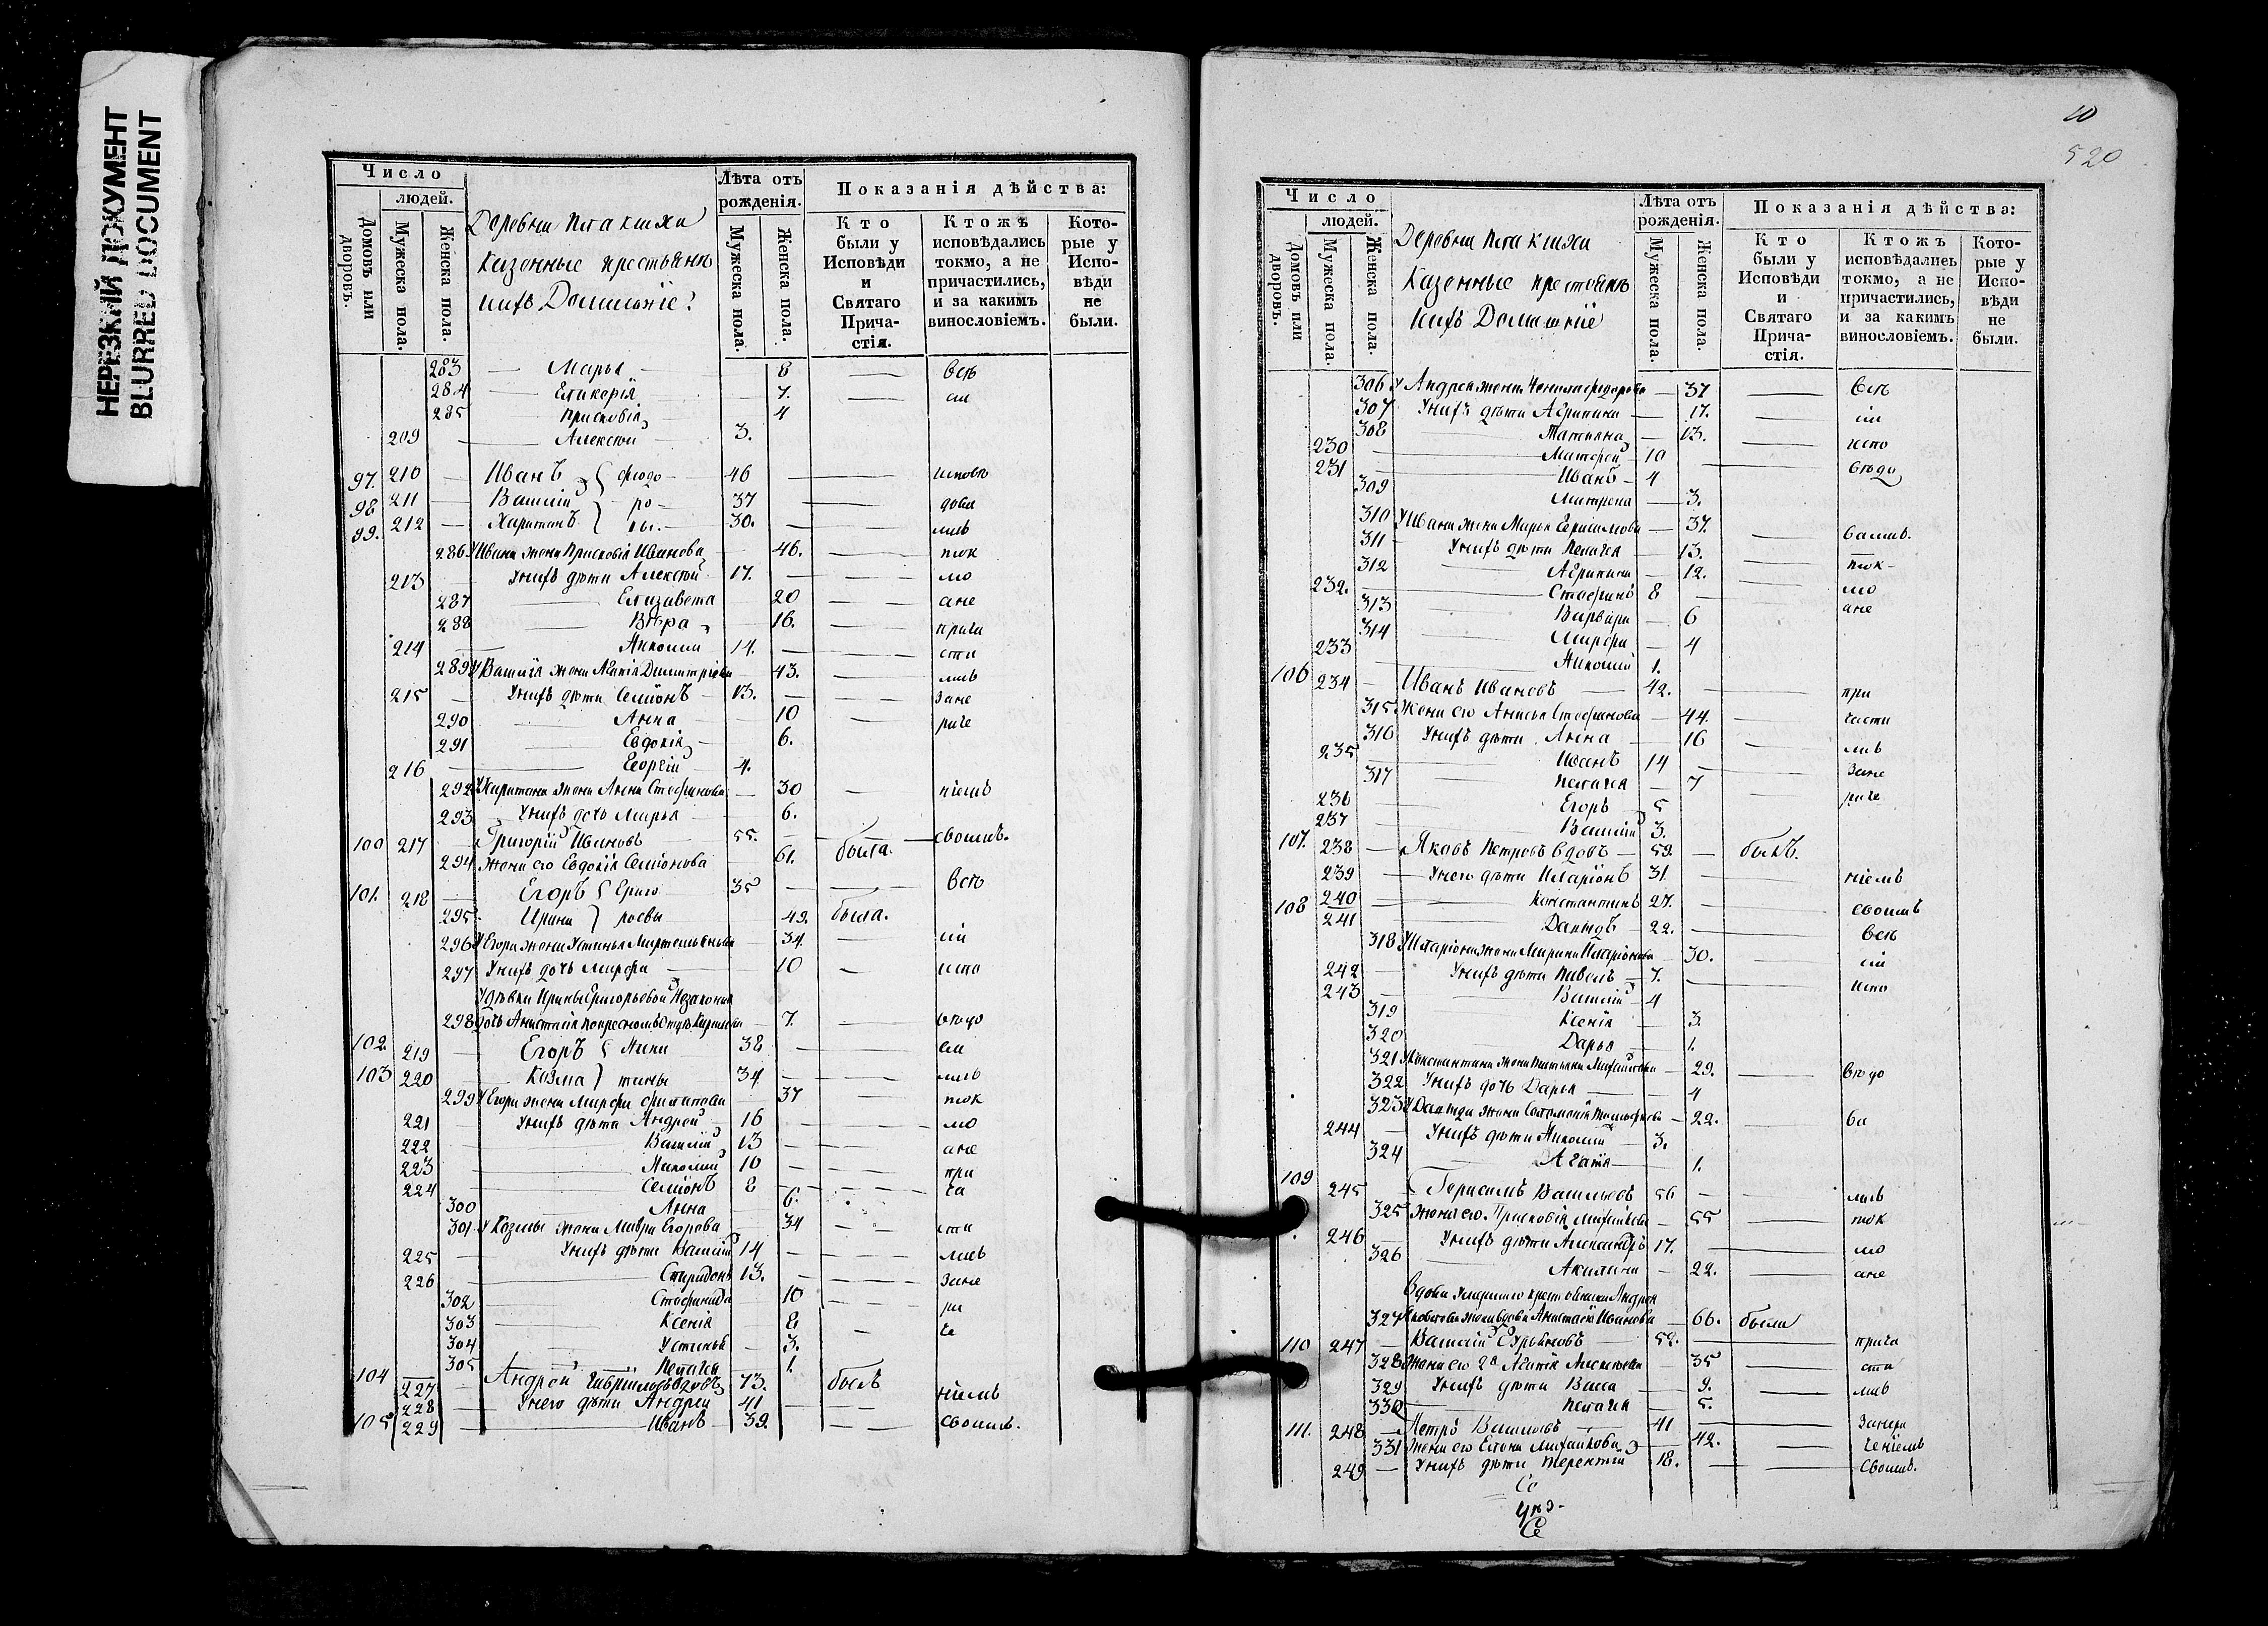 НЕРЕЗКИЙ ДОКУМЕНТ
BLURRED DOCUMENT
Число
людей.
Домовъ или дворовъ.
Мужеска пола.
Женска пола.
Деревни
Казенные крестьяне
нихъ Домашніе:
Лѣта отъ рожденія.
Мужеска пола.
Женска пола.
Показанія дѣйства:
Кто были у Исповѣди и Святаго Причастія.
Ктожъ исповѣдались токмо, а не причастились, и за какимъ винословіемъ.
Которые у Исповѣди не были.
283 Марья 8 всѣ
284 Гликерія 7. сіи
285 Прасковія 4
209 Алексѣй 3.
97. 210 Иванъ Феодо 46 исповѣ
98 211 Василій ро 37 дова
99. 212 Харитонъ вы. 30. лись
286 У Ивана жена Прасковія Иванова 46. ток
213 У нихъ дѣти Алексѣй 17. мо
287 Елизавета 20 а не
288 Вѣра 16. прича
214 Николай 14. сти
289 У Василія жена Агафія Димитріева 43. лись
215 У нихъ дѣти Семіонъ 13. за не
290 Анна 10 раче
291 Евдокія 6.
216 Георгій 4.
292 У Харитона жена Анна Стефанова 30 ніемъ
293 У нихъ дочь Марья 6.
100 217 Григорій Ивановъ 55. своимъ.
294 Жена его Евдокія Семіонова 61. была.
101. 218 Егоръ Григо 35 всѣ
295 Ирина рьевы 49. была.
296 У Егора жена Устинья 34 сіи
297 У нихъ дочь Марфа 10 испо
У дѣвки Ирины Григорьевой Незаконная
298 дочь Анастасія 7. вѣдо
102. 219 Егоръ Ники 38 ва
103 220 Козма тины 34 лись
299 У Егора жена Марфа Филипова 37 ток
221 У нихъ дѣти Андрей 16 мо
222 Василій 13 а не
223 Николай 10 при
224 Семіонъ 8 ча
300 Анна 6.
301 У Козмы жена Мавра Егорова 34 сти
225 У нихъ дѣти Василій 14 лись
226 Спиридонъ 13. за не
302 Стефанида 10 ра
303 Ксенія 8 че
304 Устинья 3.
305 Пелагея 1.
104 227 Андрей Гавриловъ вдовъ 73. былъ
228 У него дѣти Андрей 41 ніемъ
105 229 Иванъ 39. своимъ.
10
520
Число
людей.
Домовъ или дворовъ.
Мужеска пола.
Женска пола.
Деревни
Казенные крестьяне
нихъ Домашніе
Лѣта отъ рожденія.
Мужеска пола.
Женска пола.
Показанія дѣйства:
Кто были у Исповѣди и Святаго Причастія.
Ктожъ исповѣдались токмо, а не причастились, и за какимъ винословіемъ.
Которые у Исповѣди не были.
306 У Андрея жена Федорова 37 всѣ
307 У нихъ дѣти Агрипина 17. сіи
308 Татьяна 13.
230 Матфей 10 испо
231 Иванъ 4 вѣдо
309 Матрена 3.
310 У Ивана жена Марья Герасимова 37. вались.
311 У нихъ дѣти Пелагея 13. ток-
312 Агрипина 12. мо
232. Стефанъ 8 а не
313 Варвара 6
314 Марфа 4
233 Николай 1.
106 234 Иванъ Ивановъ 42. при
315 Жена его Анисья Стефанова 44. части
316 У нихъ дѣти Анна 16 лись
235 Иванъ 14 за не
317 Пелагея 7
236 Егоръ 5 раче
237 Василій 3.
107. 238 Яковъ Петровъ вдовъ 59. былъ.
239 У него дѣти Иларіонъ 31. ніемъ
108 240 Константинъ 27. своимъ
241 Давыдъ 22. всѣ
318 У Иларіона жена Марина Иларіонова 30. сіи
242 У нихъ дѣти Павелъ 7. испо
243 Василій 4
319 Ксенія 3.
320 Дарья 1.
321 У Константина жена Татьяна Михайлова 29. вѣдо
322 У нихъ дочь Дарья 4
323 У Давыда жена Соломонія Тимофеева 22. ва
244 У нихъ дѣти Николай 3.
324 Агафія 1.
109 245 Герасимъ Васильевъ 56 лись
325 Жена его Прасковія Михайлова 55 ток
246 У нихъ дѣти Александръ 17. мо
326 Акилина 22. а не
Вдова умершаго крестьянина Андрея
327 жена вдова Анастасія Иванова 66. была
110 247 Василій Гурьяновъ 52. прича
328 Жена его 2я Агафія Алексѣева 35 сти
329 У нихъ дѣти Васса 9. лись
330 Пелагея 5.
111. 248 Петръ Васильевъ 41 за нера
331 Жена его Елена Михайлова 42. ченіемъ
249 У нихъ дѣти Терентій 18. своимъ.